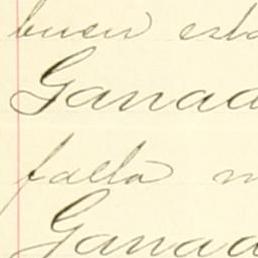 buen esta
Ganad
falla m
Ganad